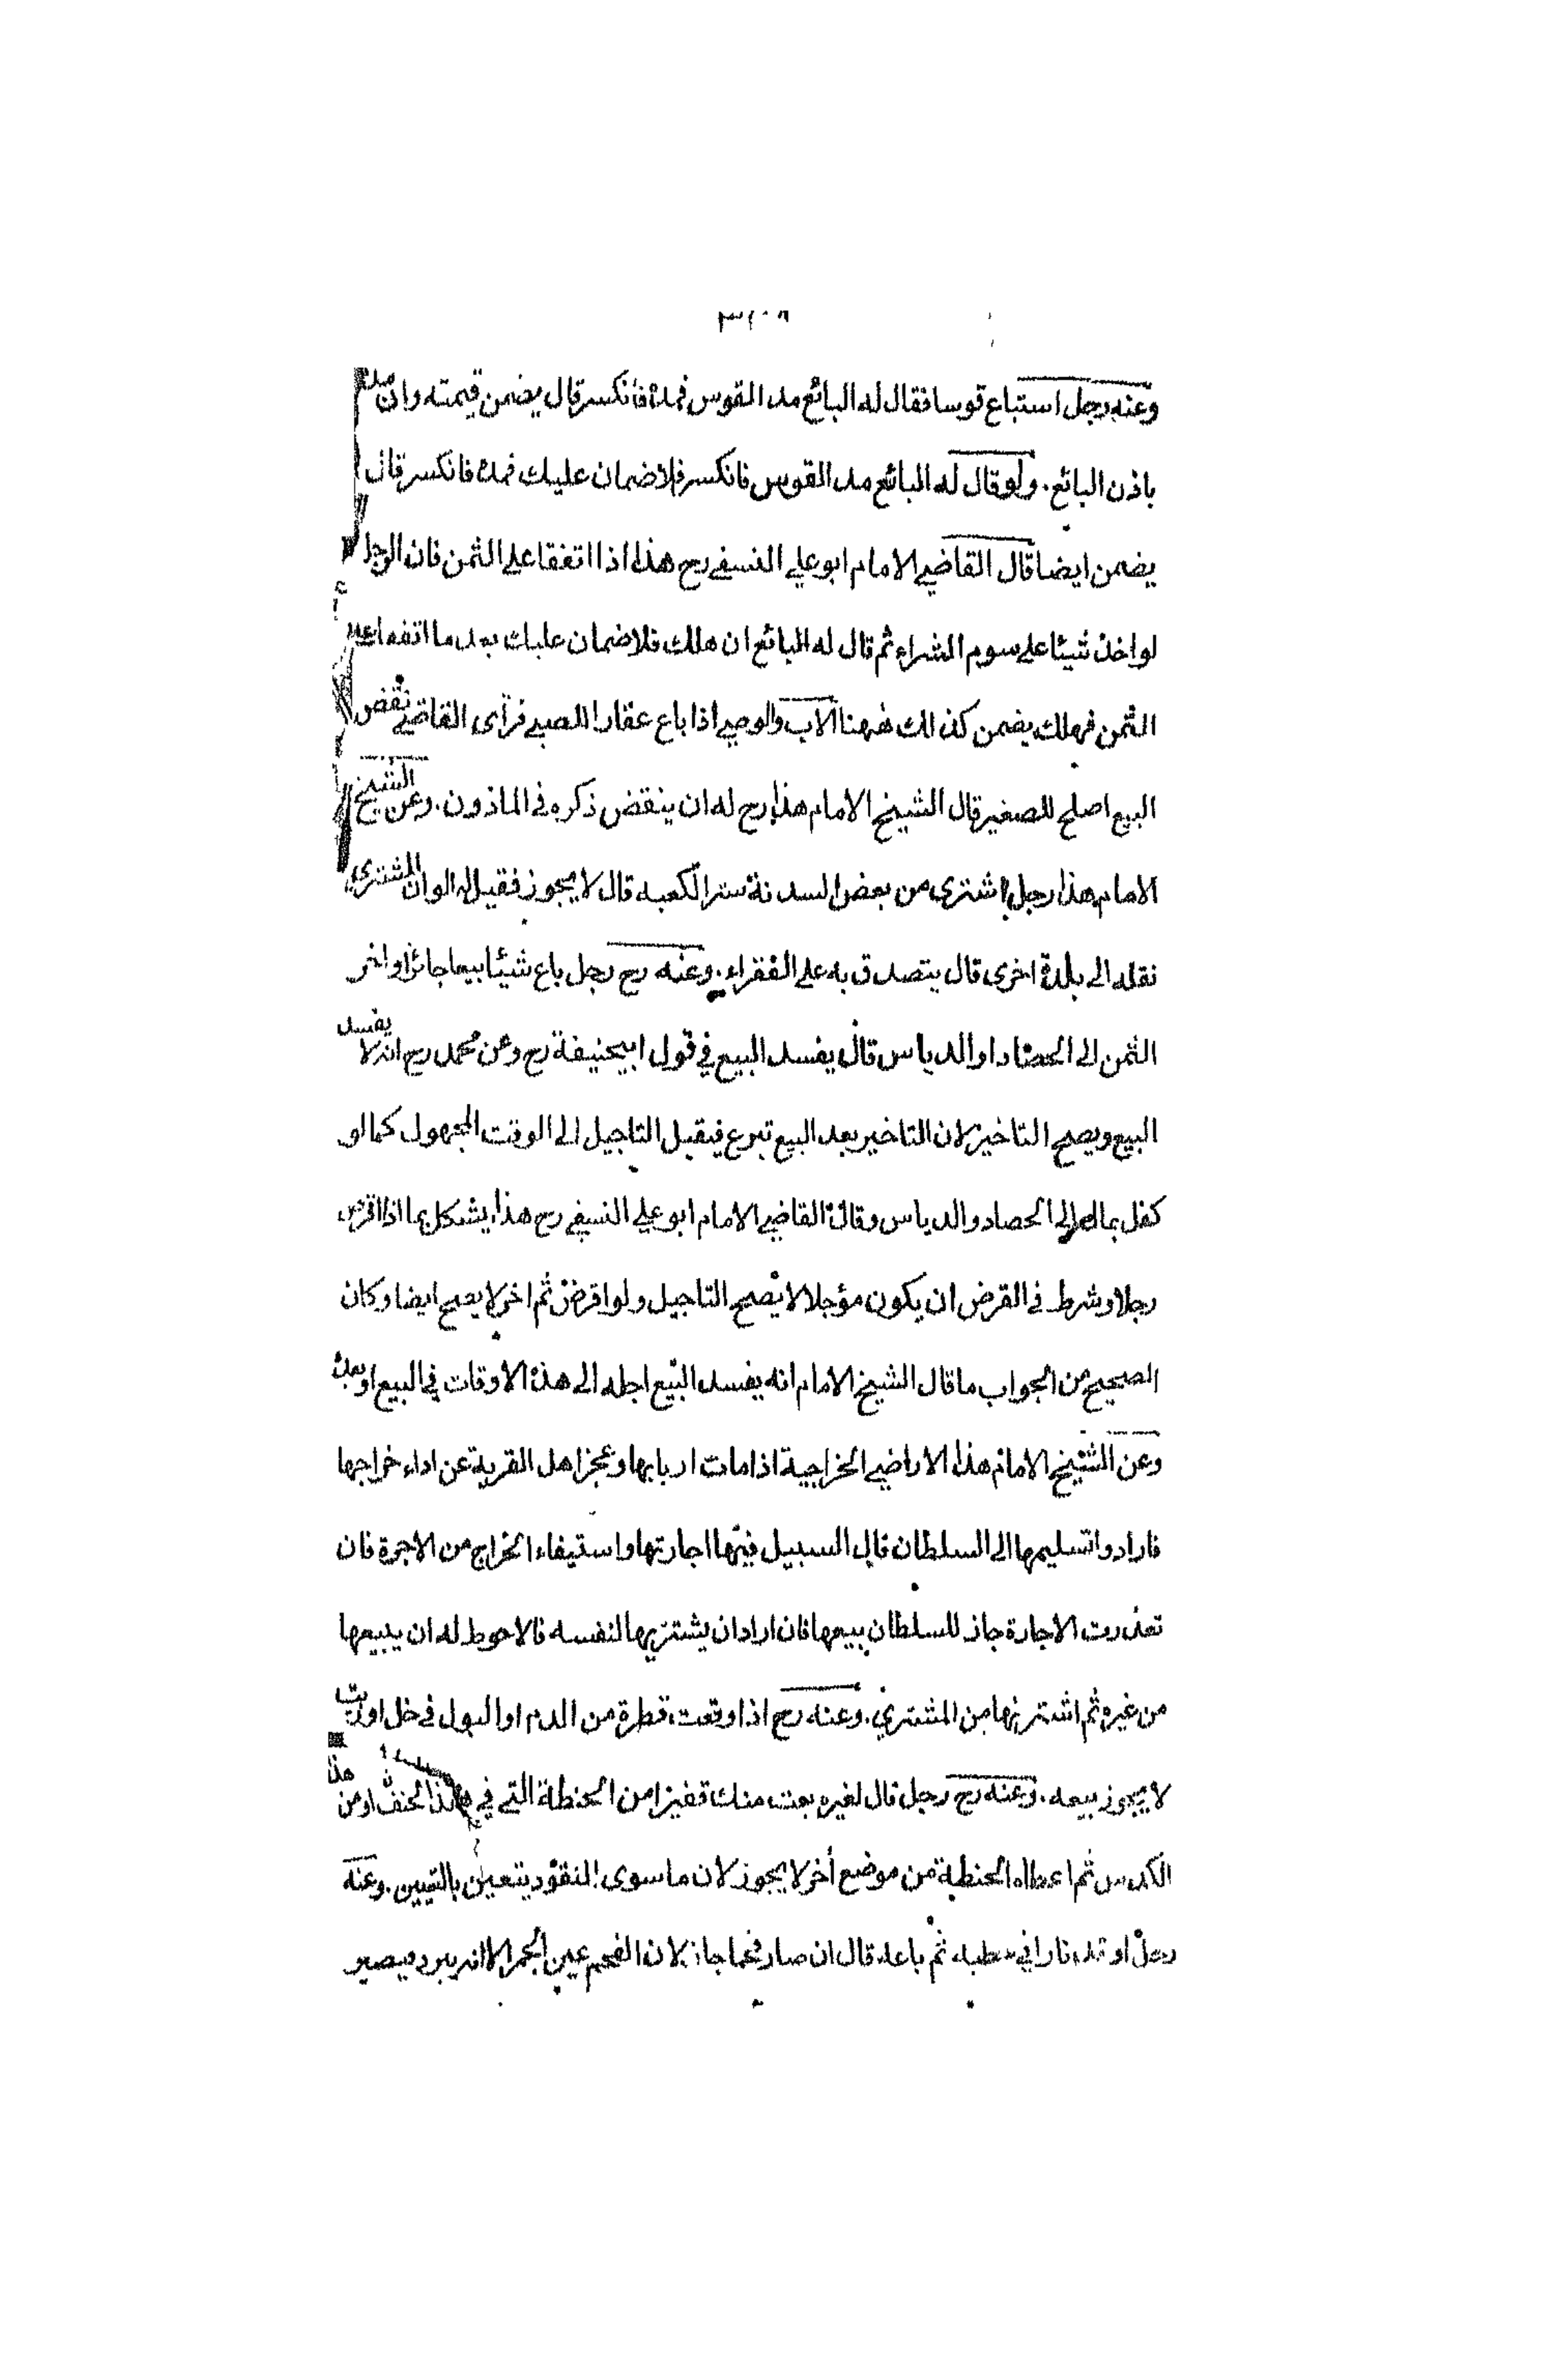 وعنه رجل استباع قوسا فقال له البائع مد القوس فمده فانكسر قال يضمن قيمته وان مده
باذن البائع . ولو قال له البائع مد القوس فانكسر فلاضمان عليك فمده فانكسر قال
يضمن ايضا قال القاضي الامام ابو علي النسفي رح هذا اذا اتفقا على الثمن فان الرجل
لو اخذ شيئا على سوم الشراء ثم قال له البائع ان هلك فلاضمان عليك بعد ما اتفقا على
الثمن فهلك يضمن كذلك ههنا الاب والوصي اذا باع عقارا للصبي فرأى القاضي نقض
البيع اصلح للصغير قال الشيخ الامام هذا رح له ان ينقض ذكره في الماذون . وعن الشيخ
الامام هذا رجل اشترى من بعض السدنة ستر الكعبه قال لا يجوز فقيل له لو ان المشتري
نقله الى بلدة اخرى قال يتصدق به على الفقراء . وعنه رح رجل باع شيئا بيعا جائزا واخر
الثمن الى الحصاد او الدياس قال يفسد البيع في قول ابيحنيفة رح وعن محمد رح انه لا يفسد
البيع ويصح التاخير لان التاخير بعد البيع تبرع فيقبل التاجيل الى الوقت المجهول كما لو
كفل بمال الى الحصاد والدياس وقال القاضي الامام ابو علي النسفي رح هذا يشكل بما اذا اقرض
رجلا وشرط في القرض ان يكون مؤجلا لا يصح التاجيل ولو اقرض ثم اخر لا يصح ايضا وكان
الصحيح من الجواب ما قال الشيخ الامام انه يفسد البيع اجله الى هذه الاوقات في البيع او بعده
وعن الشيخ الامام هذا الاراضي الخراجية اذا مات اربابها وعجز اهل القرية عن اداء خراجها
فارادوا تسليمها الى السلطان قال السبيل فيها اجارتها واستيفاء الخراج من الاجرة فان
تعذرت الاجارة جاز للسلطان بيعها فان اراد ان يشتريها لنفسه فالاحوط له ان يبيعها
من غيره ثم اشتريها من المشتري . وعنه رح اذا وقعت قطرة من الدم او البول في خل او زيت
لا يجوز بيعه . وعنه رح رجل قال لغيره بعت منك قفيزا من الحنطة التي في هذا او من هذا
الكدس ثم اعطاه الحنطة من موضع أخر لا يجوز لان ما سوى النقود يتعين بالتعيين . وعنه
رجل اوقد نارا في حطبه ثم باعه قال ان صار فحما جاز لان الفحم عين الجمر الا انه يبرد فيصير